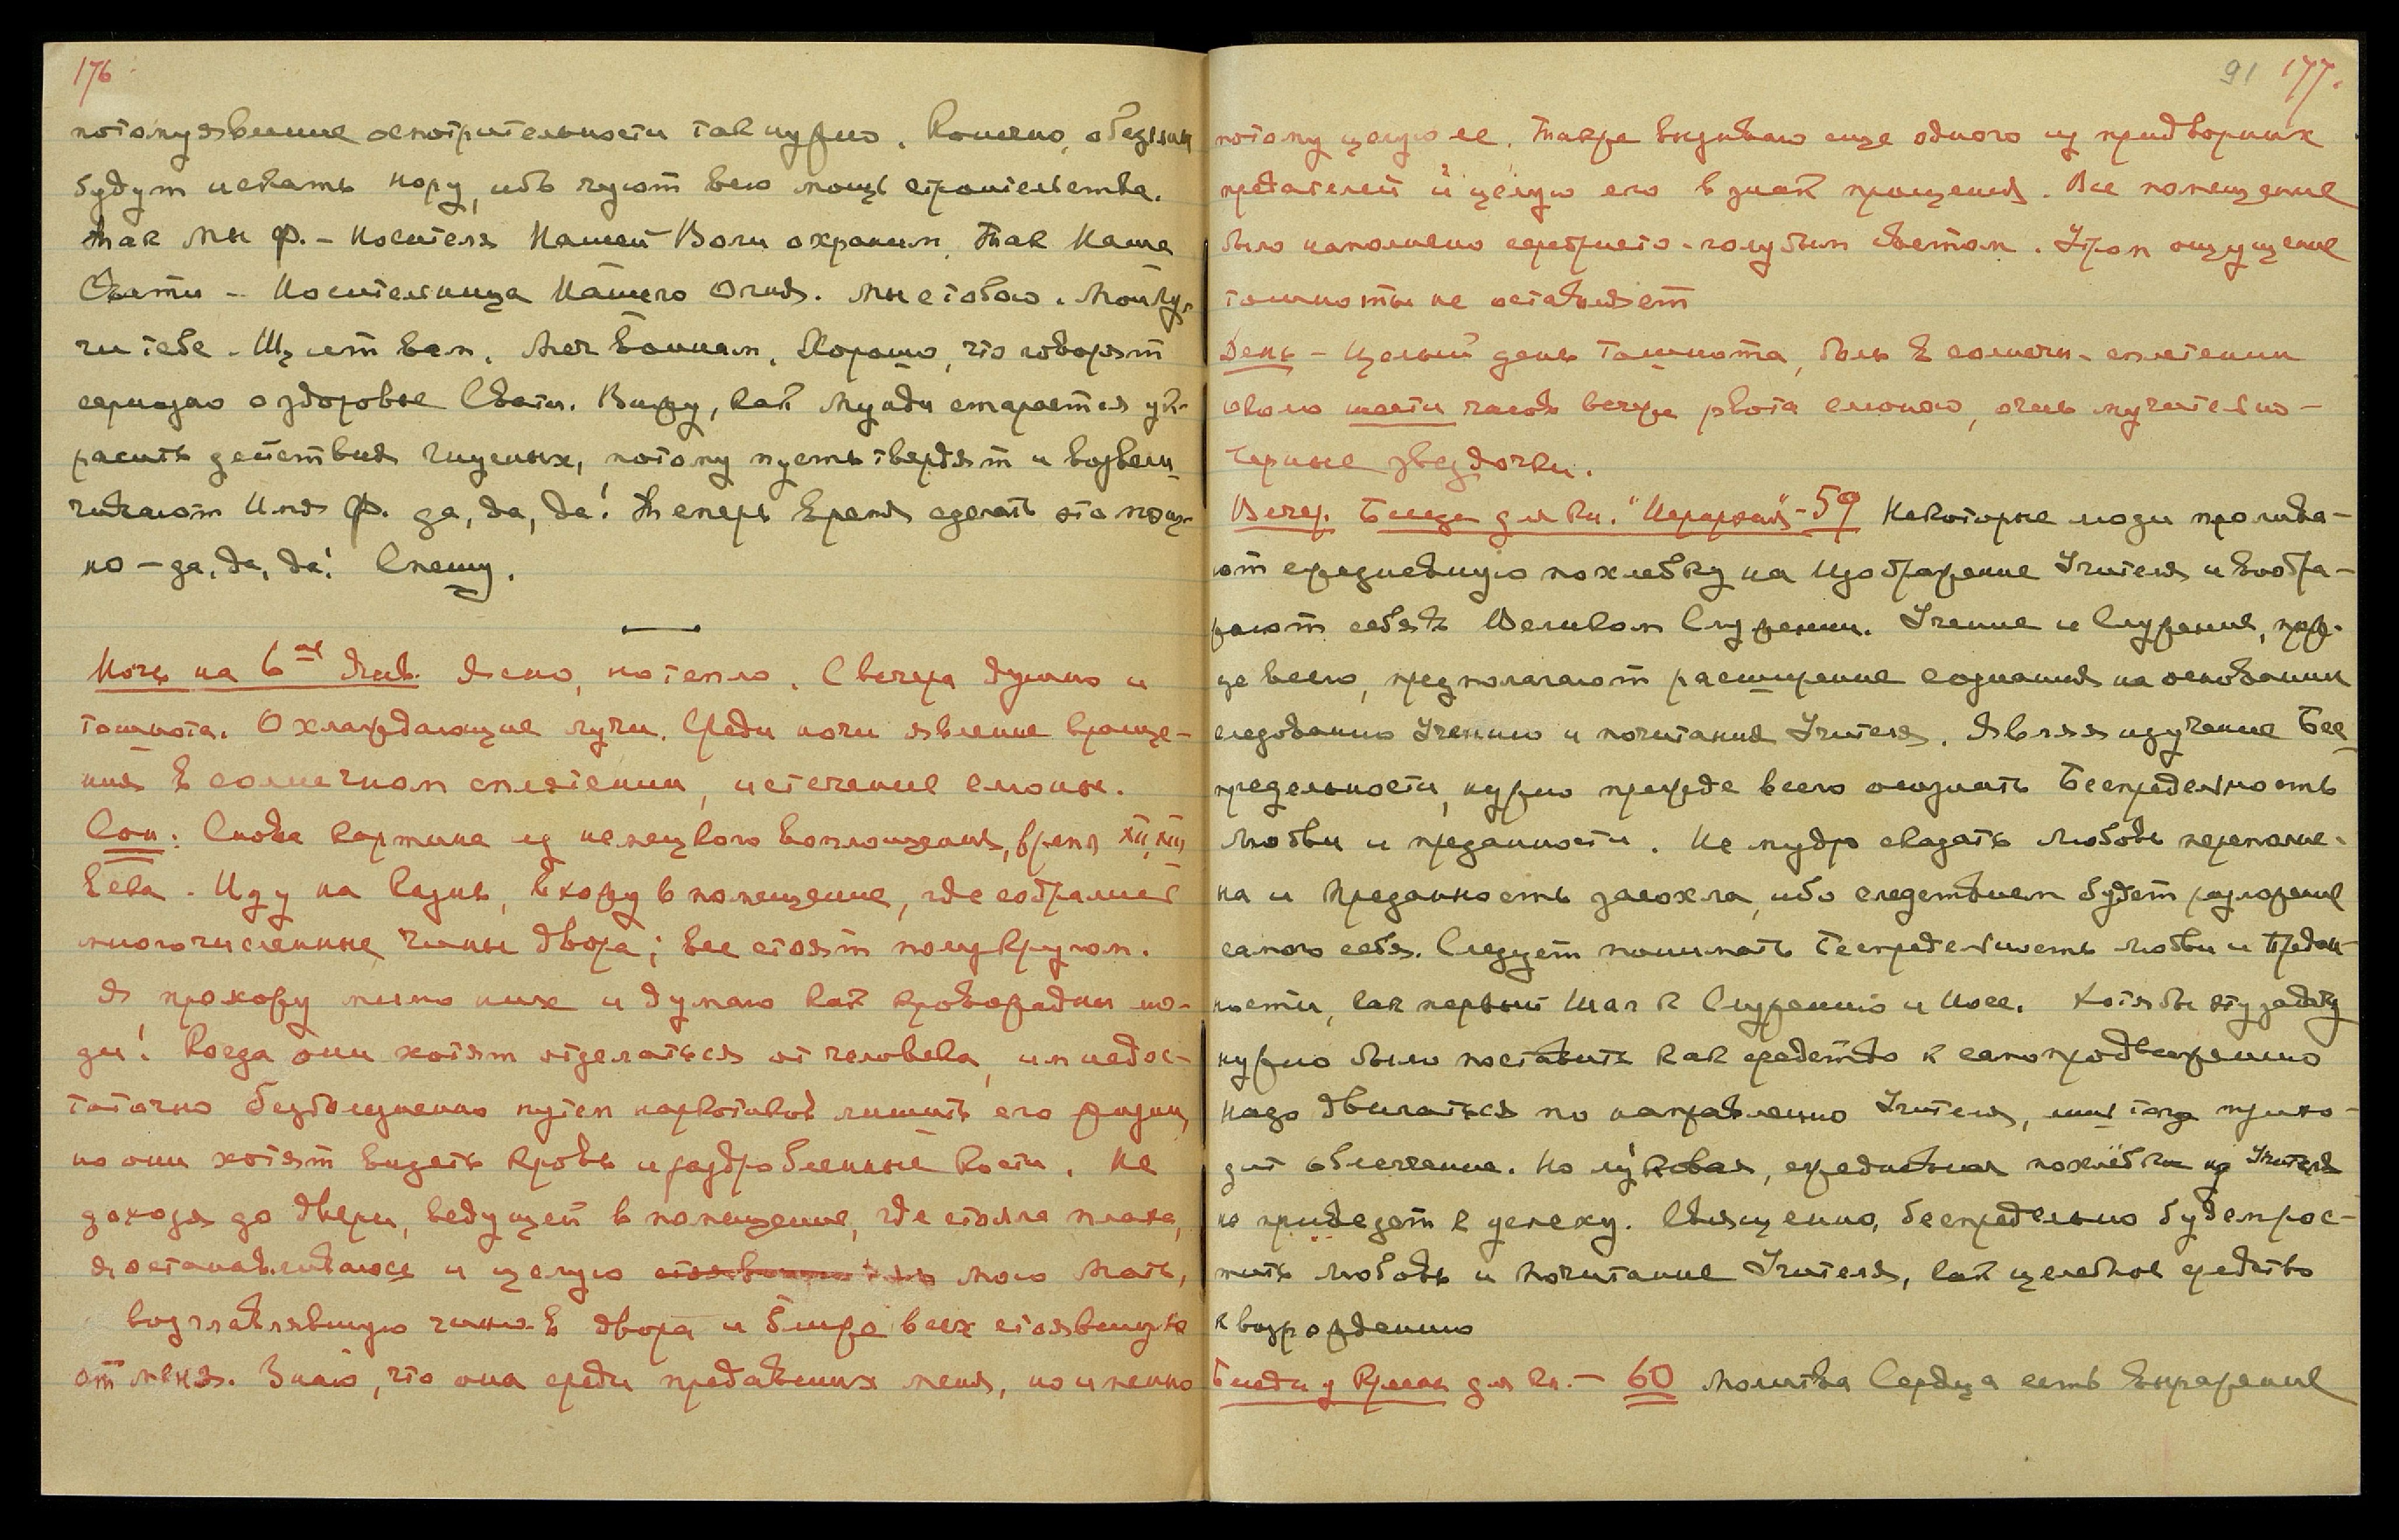 176
потому явление осмотрительности так нужно. Конечно, обезьяны
будут искать нору, ибо чуют всю мощь строительства.
Так мы Ф. – Носителя Нашей Воли охраним. Так Наша
Свати – Носительница Нашего Огня. Мы с тобою. Мои Лу-
чи тебе. Щит вам. Меч Воинам. Хорошо, что говорят
серьезно о здоровье Свати. Вижу, как Люди старается ук-
расить действия, потому пусть твердят и возвели-
чивают Имя Ф. да, да, да! Теперь время сделать это мощ-
но – да, да, да! Спешу.
Ночь на 6ое Янв. Ясно, но тепло. С вечера душно и
тошнота. Охлаждающие лучи. Среди ночи явление враще-
ния в солнечном сплетении, истечение слюны.
Сон: Снова картина из немецкого воплощения, время XII, XIII
века. Иду на казнь, вхожу в помещение, где собрались
многочисленные чины двора; все стоят полукругом.
Я прохожу мимо них и думаю как кровожадны лю-
ди! Когда они хотят отделаться от человека, им недос-
таточно безболезненно путем наркотиков лишить его жизни,
но они хотят видеть кровь и раздробленные кости. Не
доходя до двери, ведущей в помещение, где стояла плаха,
я останавливаюсь и целую мою Мать,
возглавлявшую чинов двора и ближе всех стоявшую
от меня. Знаю, что она среди предавших меня, но именно
91 177.
потому целую ее. Также вызываю еще одного из придворных
предателей и целую его в знак прощения. Все помещение
было наполнено серебристо-голубым светом. Утром ощущение
тошноты не оставляет
День – Целый день тошнота, боль в солнечн. сплетении
около шести часов вечера рвота слюною, очень мучительно –
черные звездочки.
Вечер. Беседа для кн. "Иерархия" – 59 Некоторые люди пролива-
ют сладневную похлебку на Изображение Учителя и вообра-
жают себя в Великом Служении. Учение и Служение, преж-
де всего, предполагают расширение сознания на основании
следования Учению и почитания Учителя. Являя изучение Бес-
предельности, нужно прежде всего осознать Беспредельность
Любви и преданности. Не мудро сказать Любовь переполне-
на и преданность засохла, ибо следствием будет разложение
самого себя. Следует понимать Беспредельность любви и Предан-
ности, как первый шаг к Служению и Иоге. Хотя бы эту задачу
нужно было поставить как средство к самопродвижению
Надо двигаться по направлению Учителя, лишь тогда прихо-
дит облегчение. Но луковая, средневная похлёбка из Учителя
не приведет к успеху. Священно, беспредельно будем рас-
тить любовь и почитание Учителя, как целебное средство
к возрождению
Беседы у Камня для кн. – 60 Молитва Сердца есть выражение